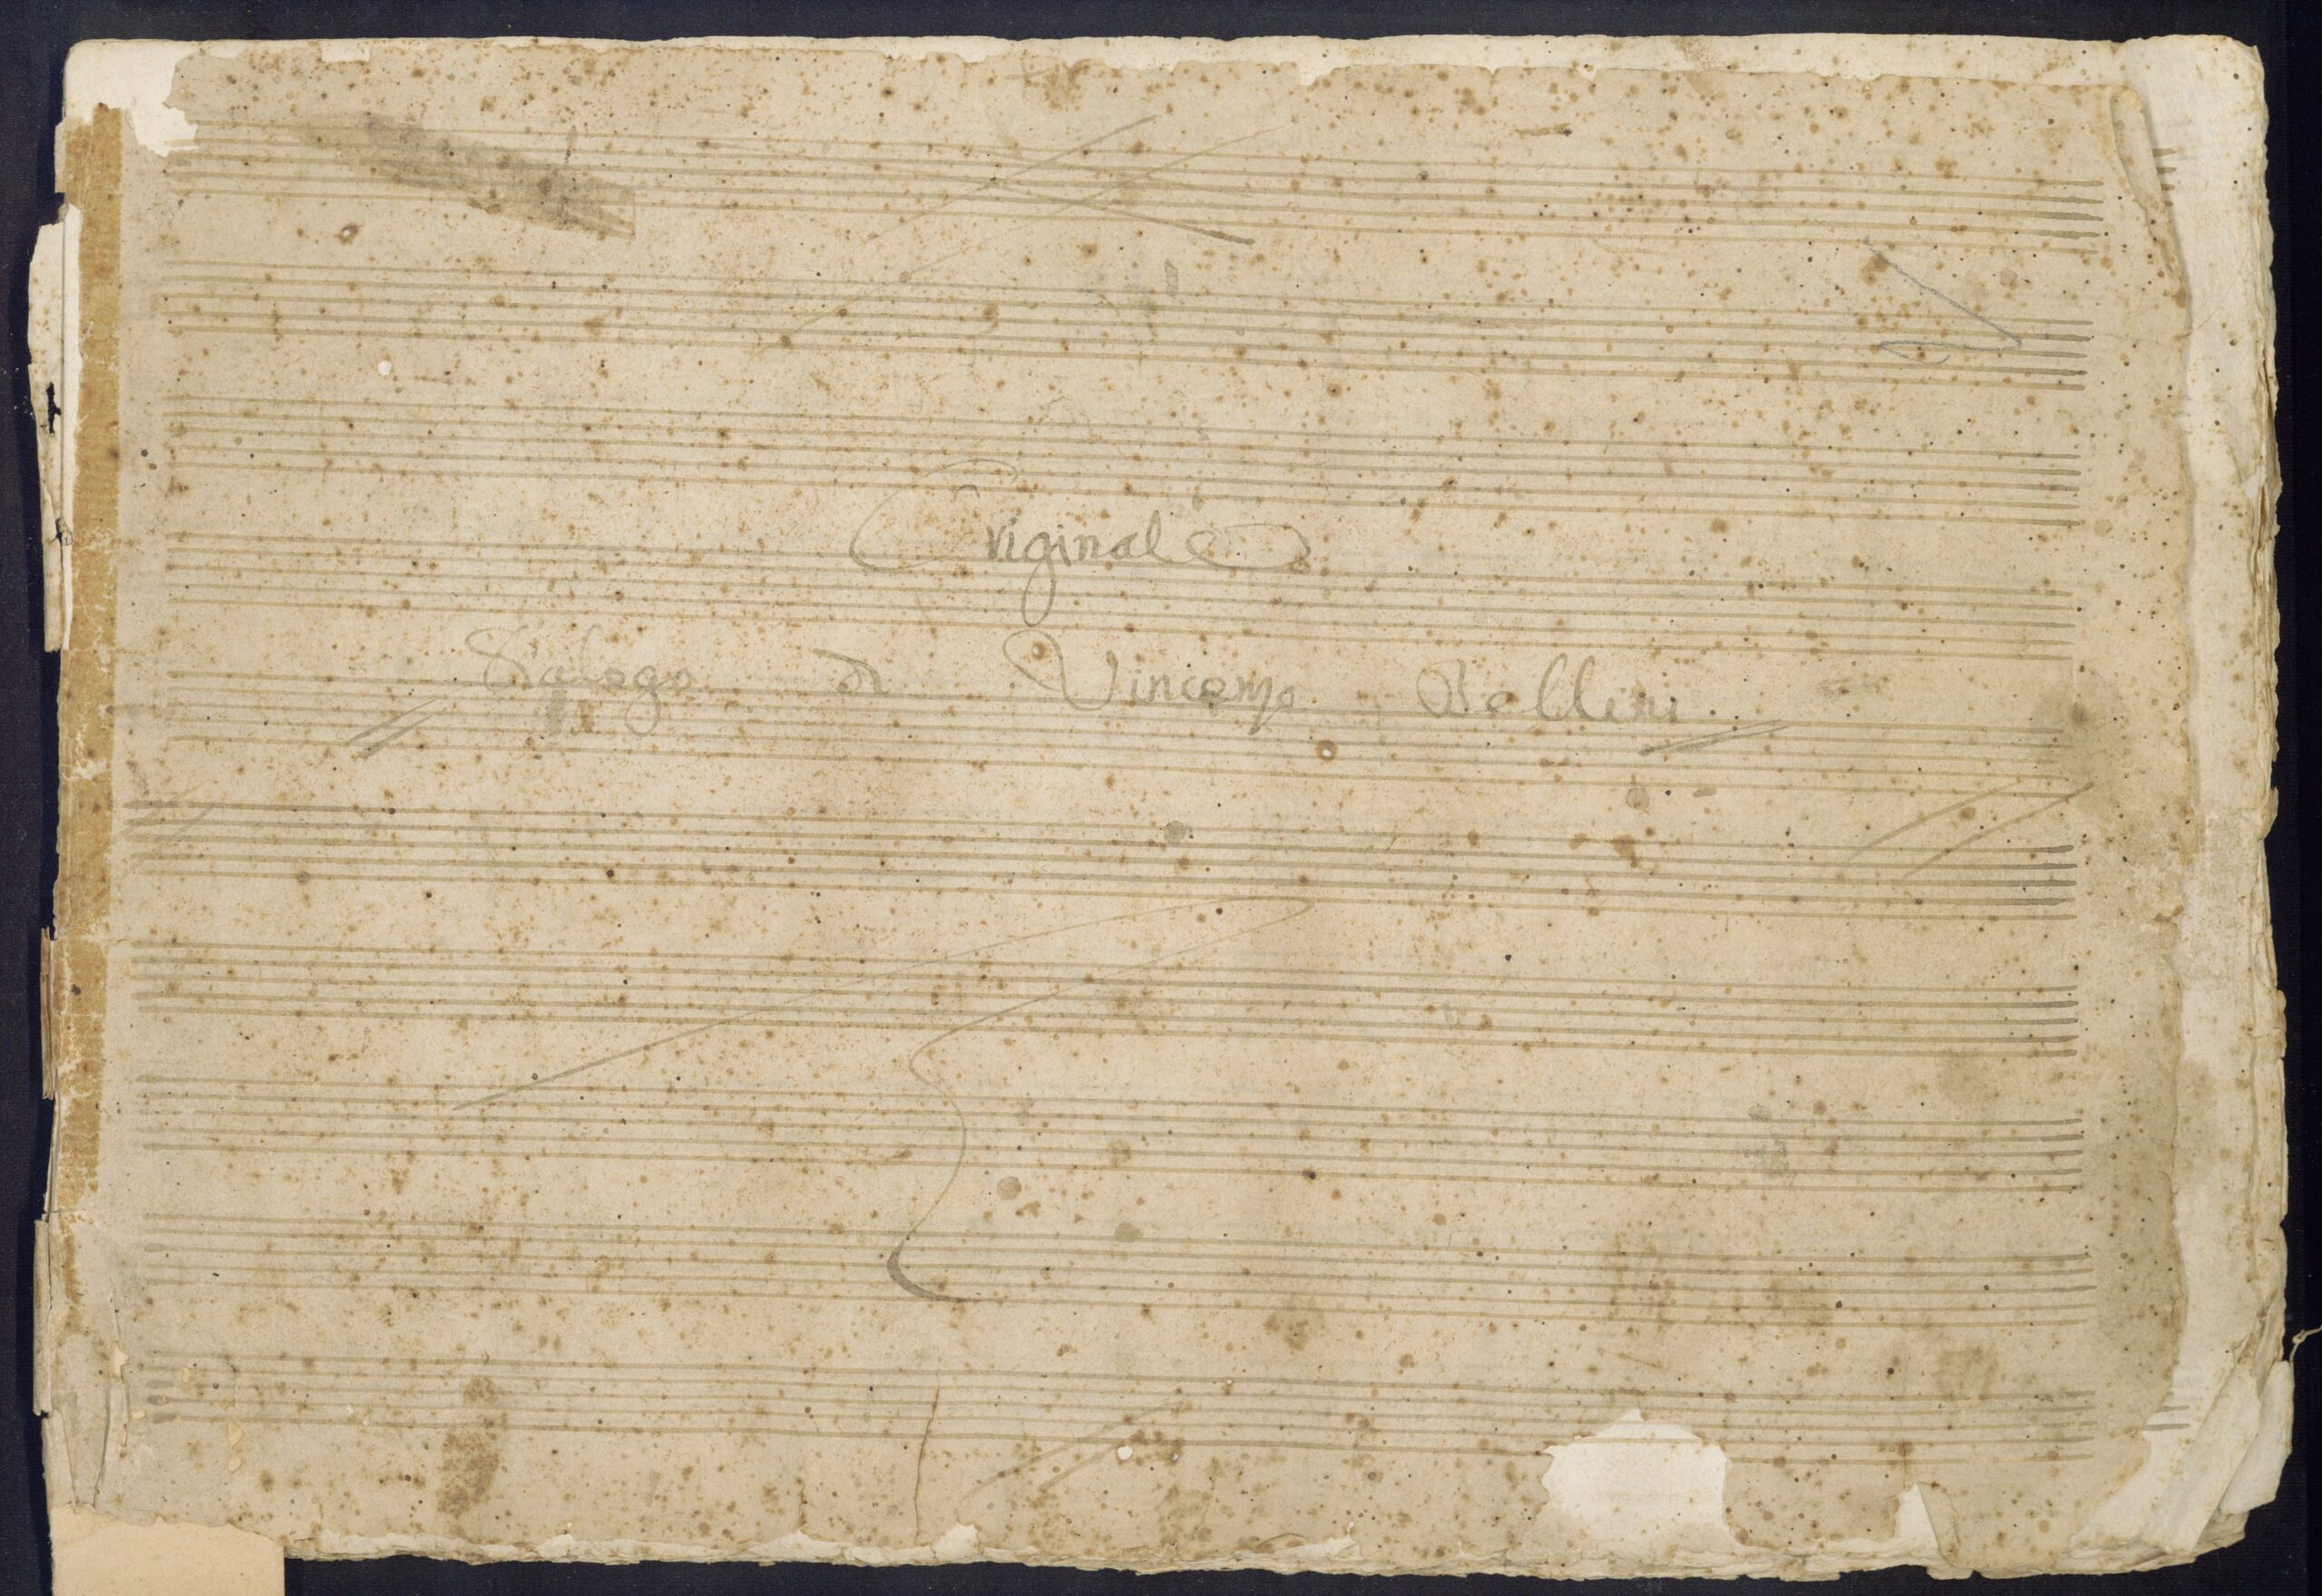 Originale
Dialogo di Vincenzo Bellini